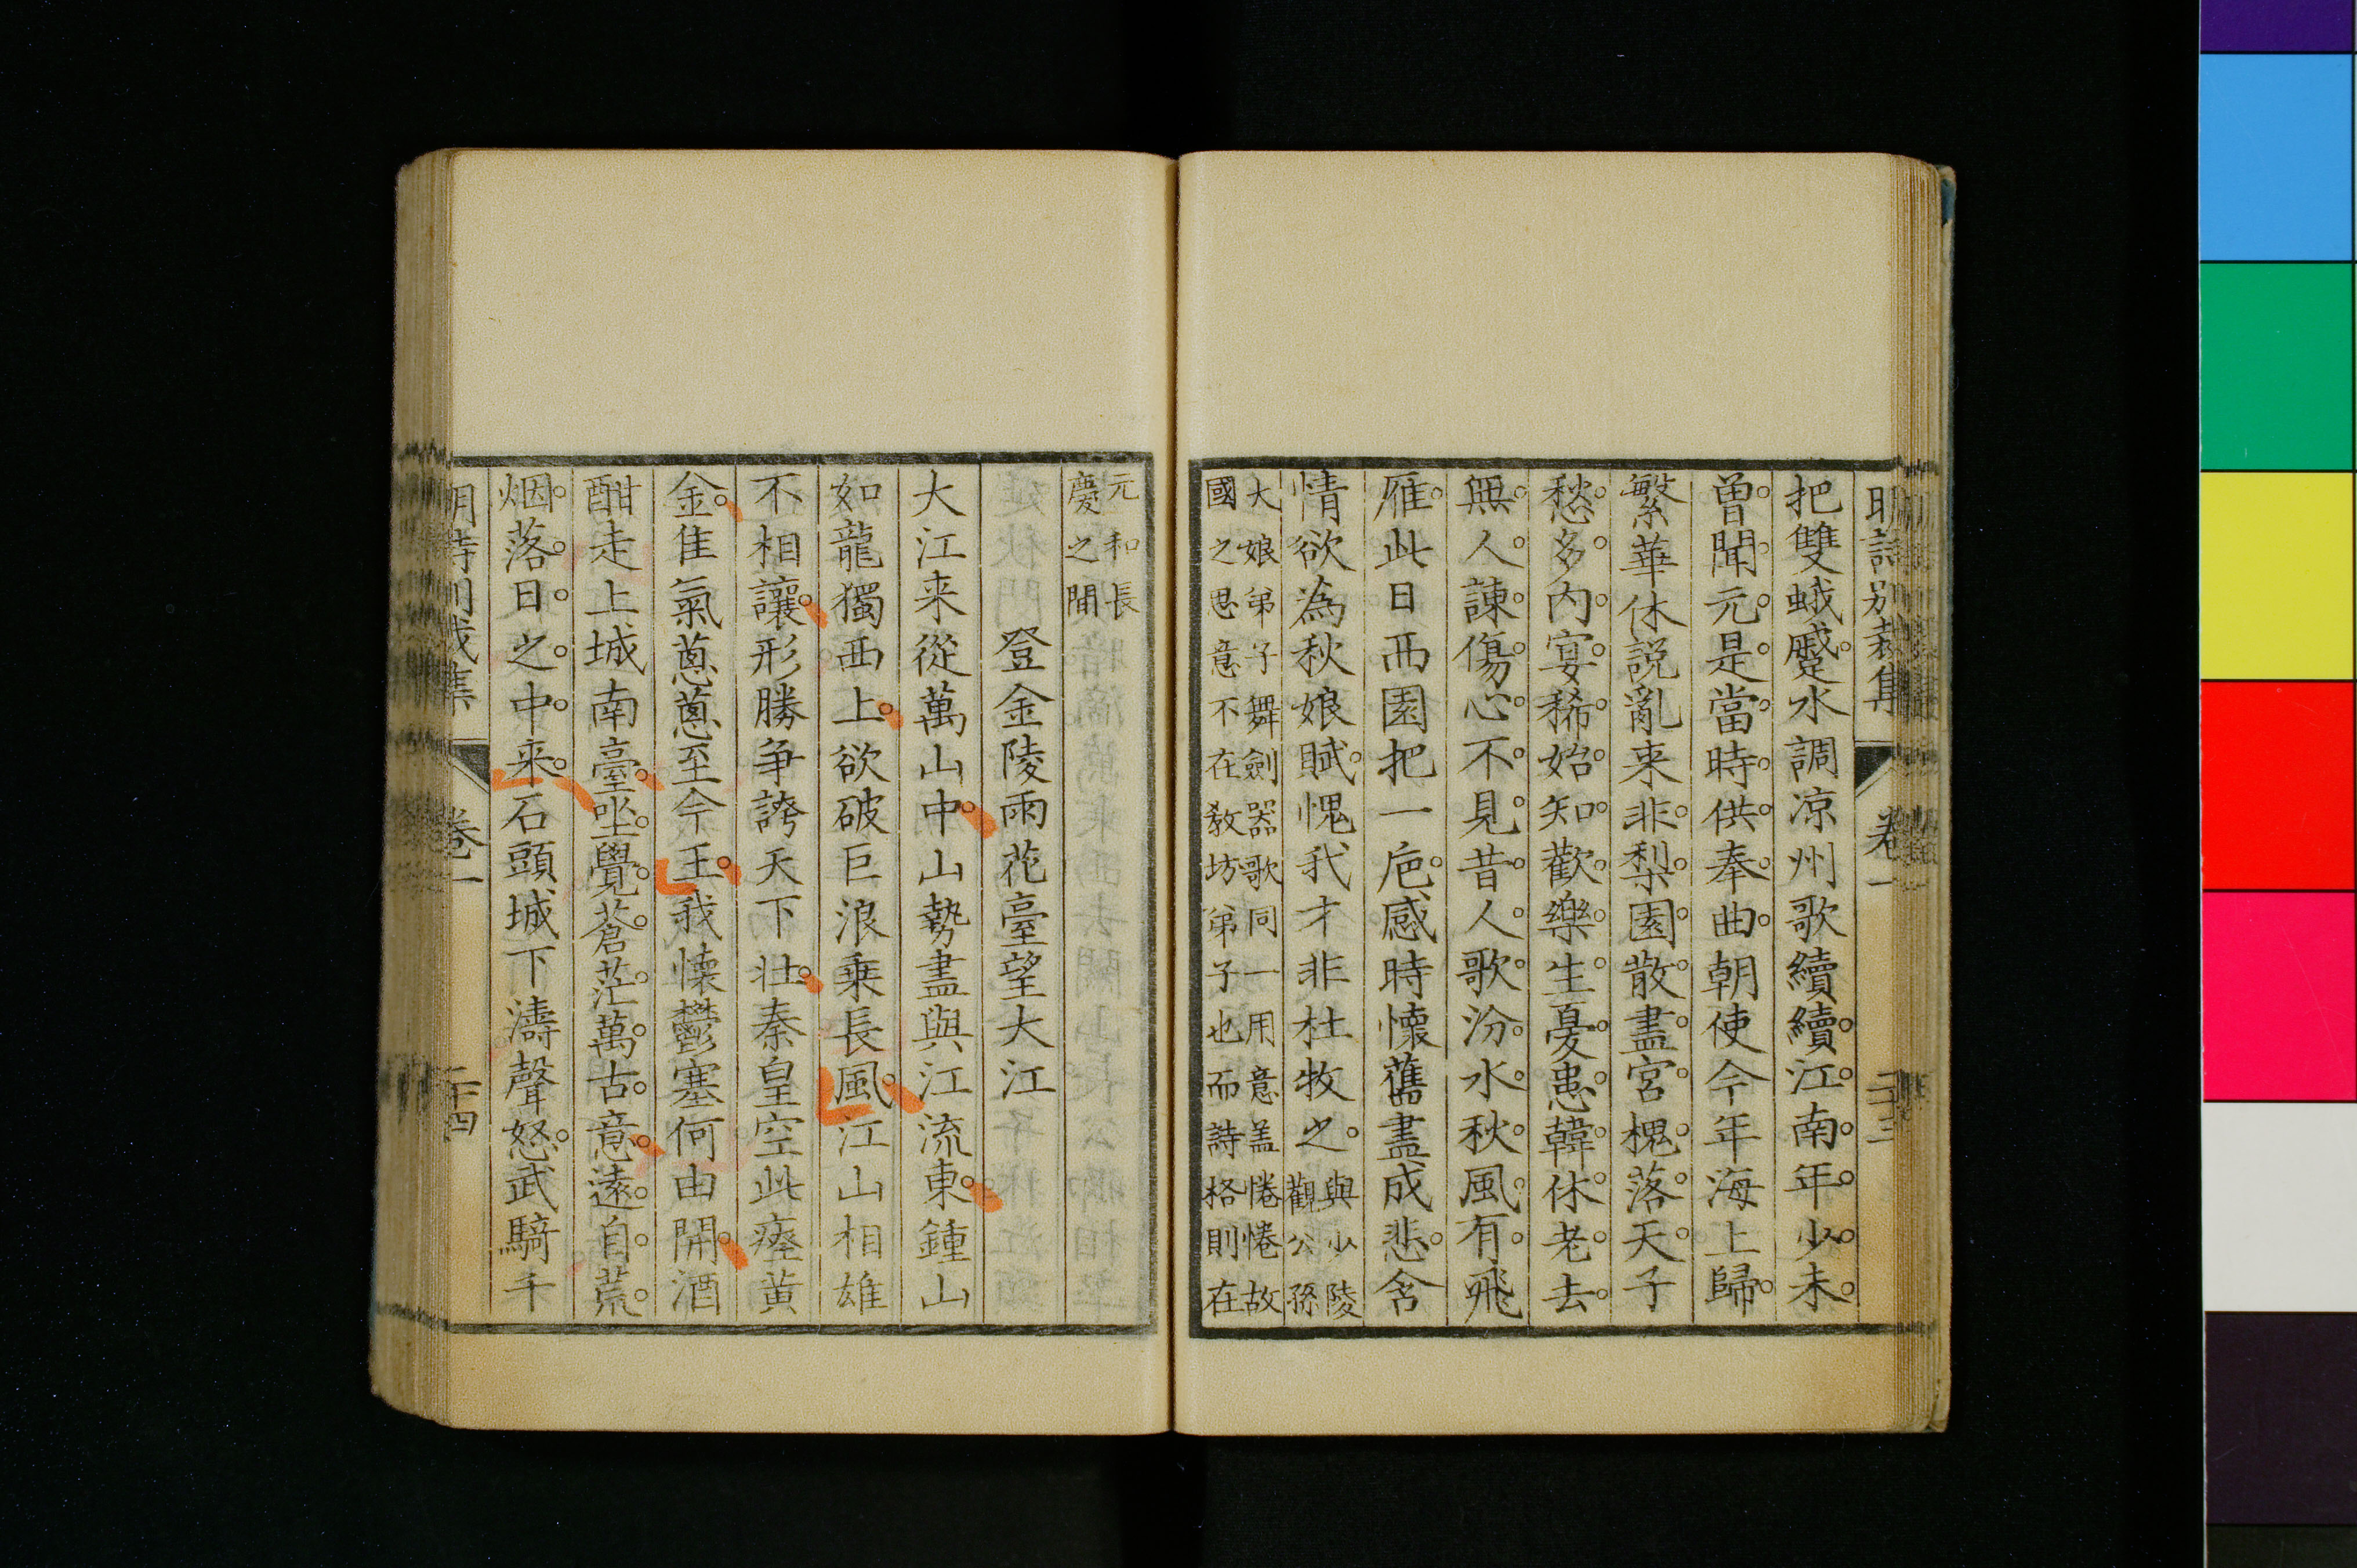 明詩別裁集 卷一 二十三
把雙蛾蹙水調凉州歌續續江南年少未
曾聞元是當時供奉曲朝使今年海上歸
繁華休説亂来非梨園散盡宮槐落天子
愁多内宴稀始知歡樂生憂患韓休老去
無人諫傷心不見昔人歌汾水秋風有飛
雁此日西園把一巵感時懐舊盡成悲含
情欲為秋娘賦愧我才非杜牧之
與少陵
觀公孫
大娘弟子舞劍器歌同一用意盖惓惓故
國之思意不在教坊弟子也而詩格則在
元和長
慶之間
登金陵雨花臺望大江
大江来從萬山中山勢盡與江流東鍾山
如龍獨西上欲破巨浪乗長風江山相雄
不相讓形勝争誇天下壮秦皇空此瘞黄
金隹氣蔥蔥至今王我懐鬱塞何由開酒
酣走上城南臺坐覺蒼茫萬古意遠自荒
烟落日之中来石頭城下濤聲怒武騎千
明詩別裁集 卷一 二十四